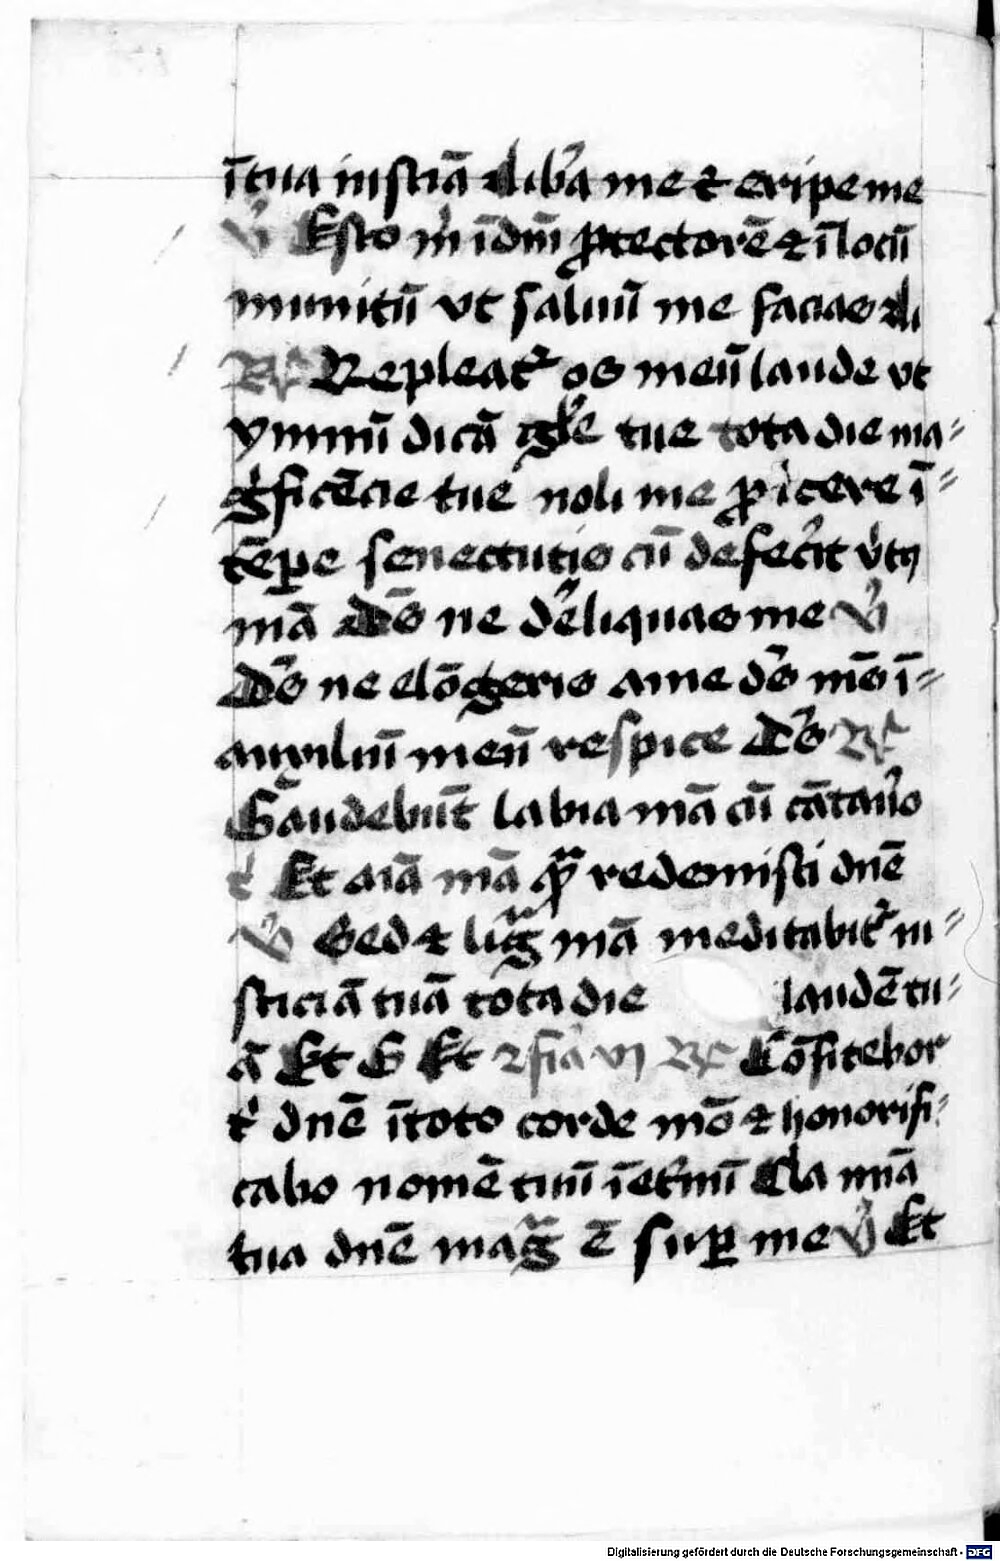 ītua iusticiā libᷣa me ⁊ eripe me
℣ Esto mͥ ī dm̄ ꝓtectorē ⁊ ī locū
munitū vt saluū me facias
℞ Repleatᷣ os meū laude vt
ymnū dicā gl̄e tue tota die ma⸗
gͥficēcie tue noli me ꝓicere ī⸗
tēꝑe senectutis cū defecͥit vͥtꝰ
mā Ds̄ ne deͥliquas me ℣
Ds̄ ne elōgeris a me ds̄ ms̄ ī⸗
auxiliū meū respice Ds̄ ℞
Gaudebūt labia mā cū cātauͦo
tͥ Et aīā mā quā redemisti dn̄e
℣ Sed ⁊ ligᷓ mā meditabitᷣ iu⸗
sticiā tuā tota die laudē tu⸗
ā Et G Et 2 fīa vj ℞ Cōfitebor
tͥ dn̄e ī toto corde mō ⁊ honorifi⸗
cabo nomē tuū ī et̄nū Q̄la mīa
tua dn̄e magᷓ ē suꝑ me ℣ Et
Digitalisierung gefördert durch die Deutsche Forschungsgemeinschaft - DFG